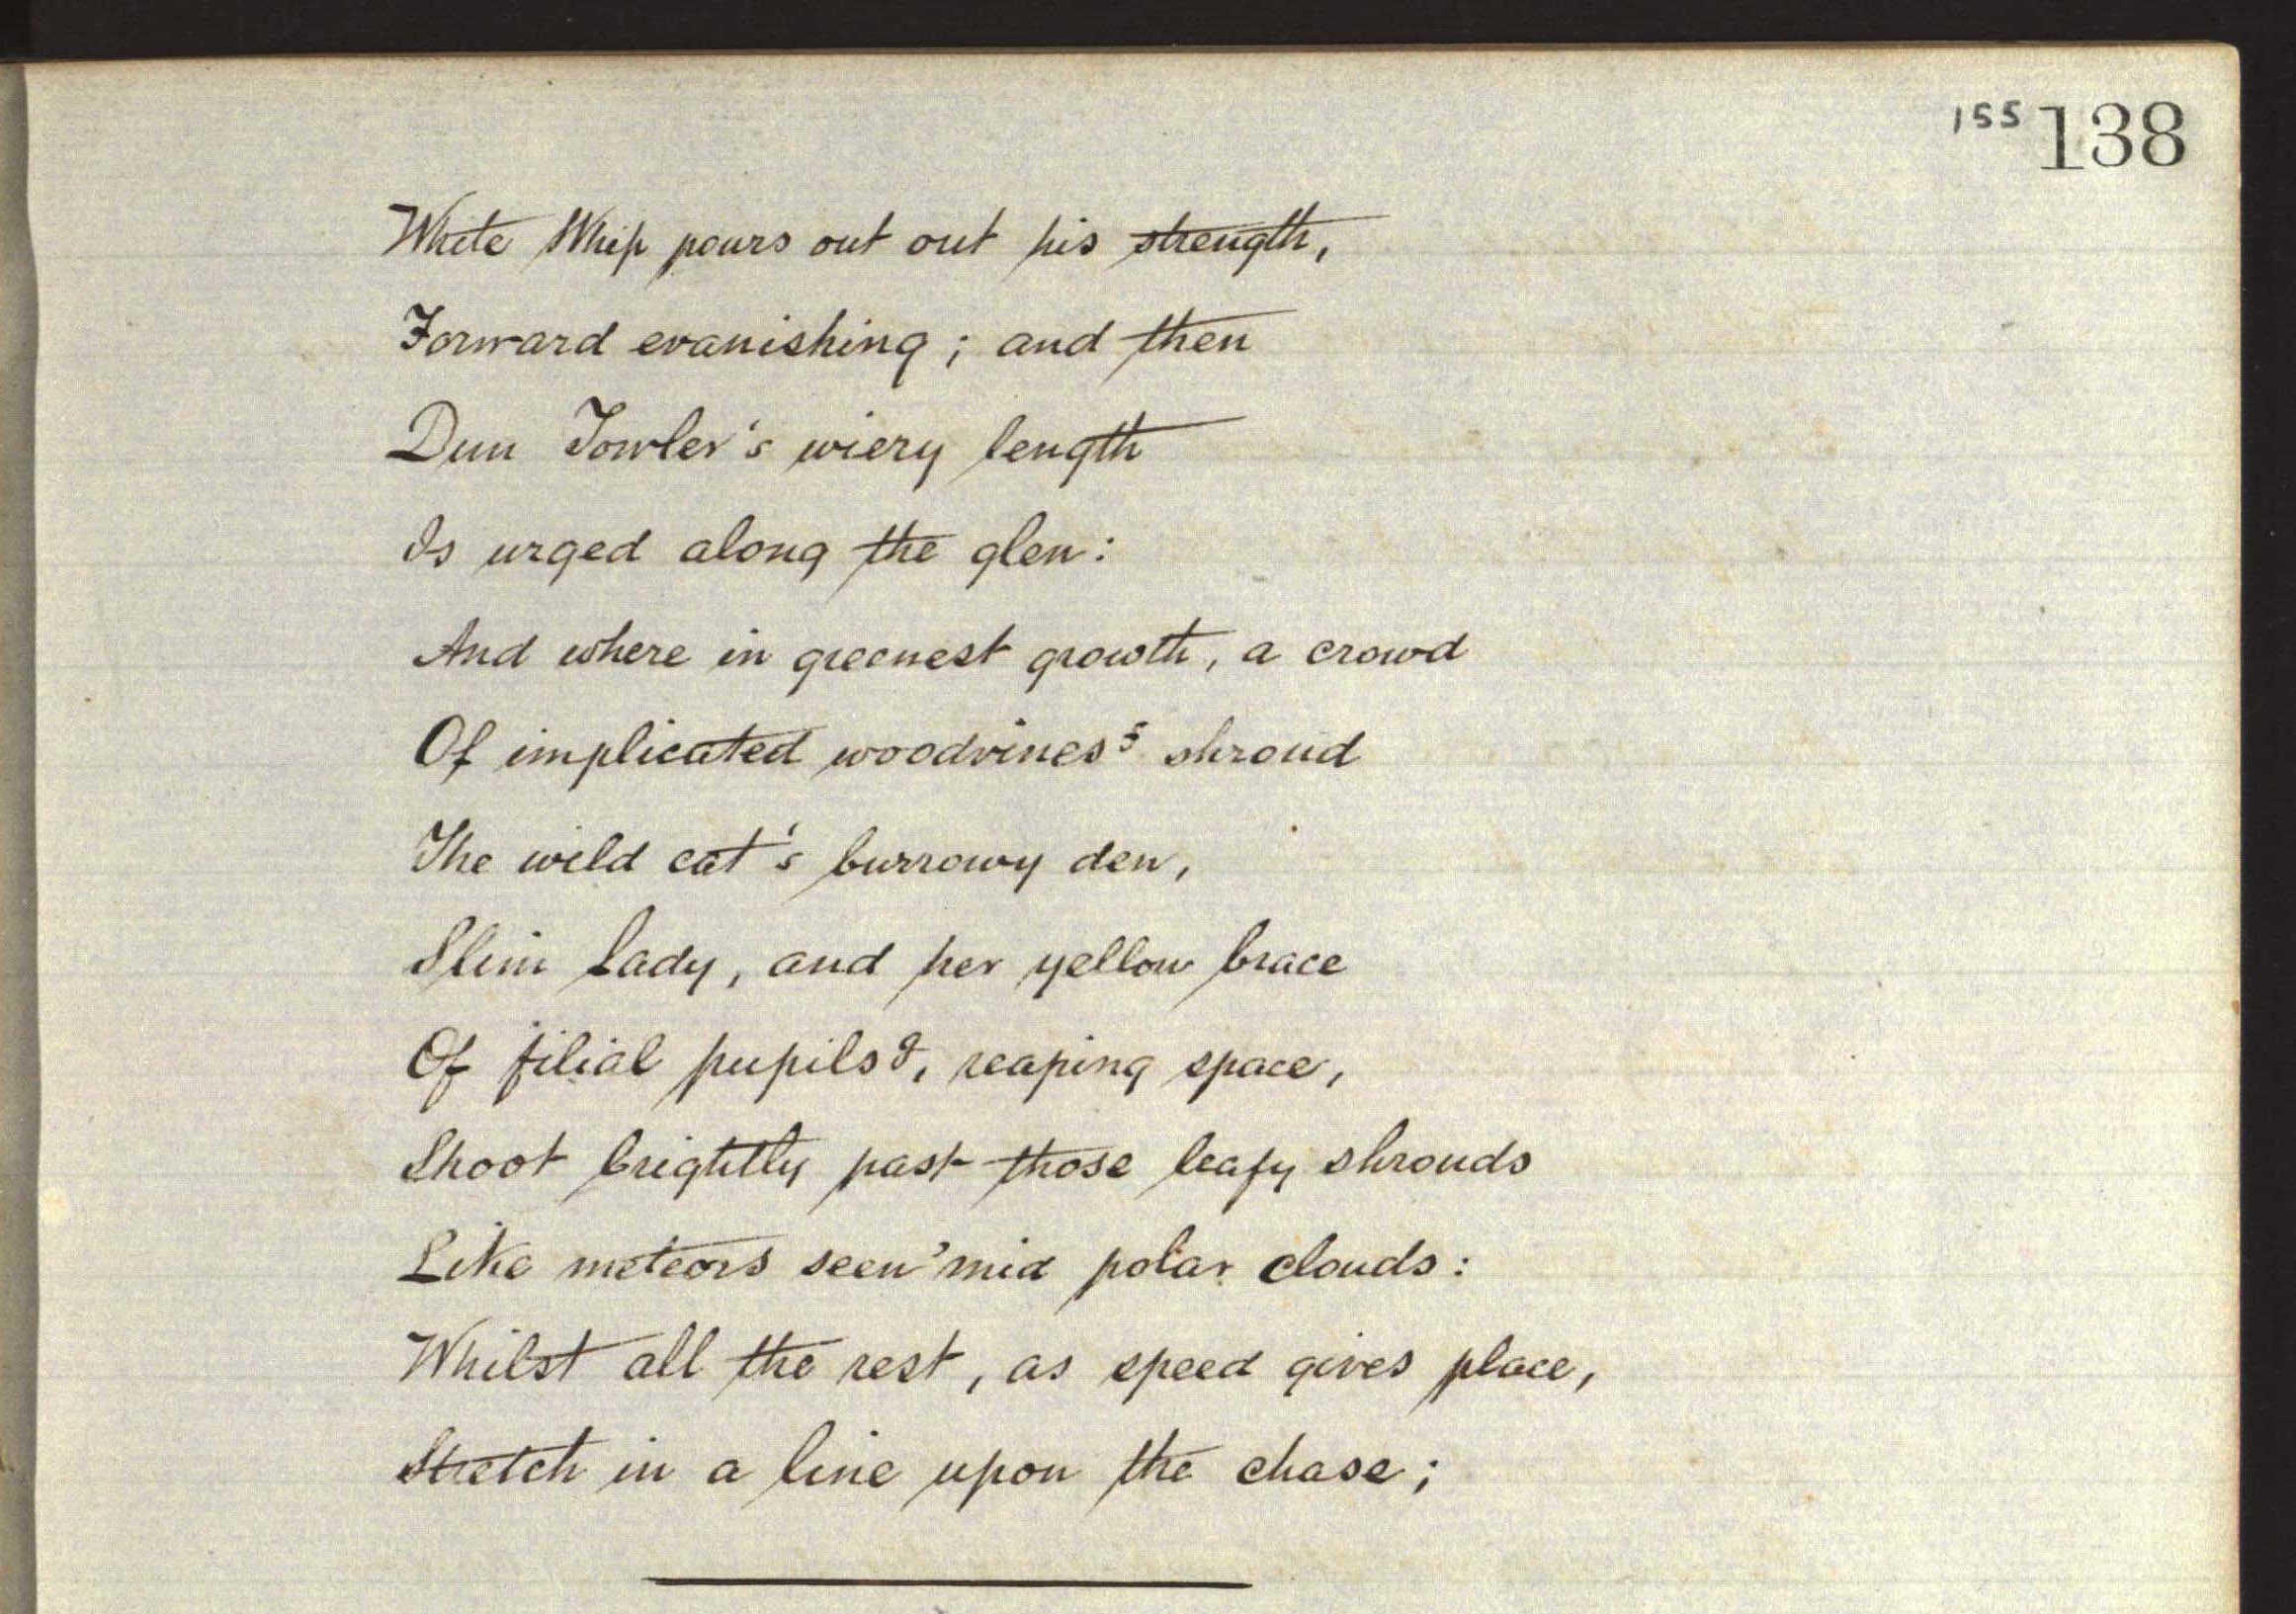 155 138
White Whip pours out out his strength,
Forward evanishing; and then
Dun Towler's wiery length
Is urged along the glen:
And where in greenest growth, a crowd
Of implicated woodvines⁵ shroud
The wild cat's burrowy den,
Slim Lady, and her yellow brace
Of filial pupils⁹, reaping space,
Shoot brightly past those leafy shrouds
Like meteors seen 'mid polar clouds:
Whilst all the rest, as speed gives place,
Stretch in a line upon the chase;